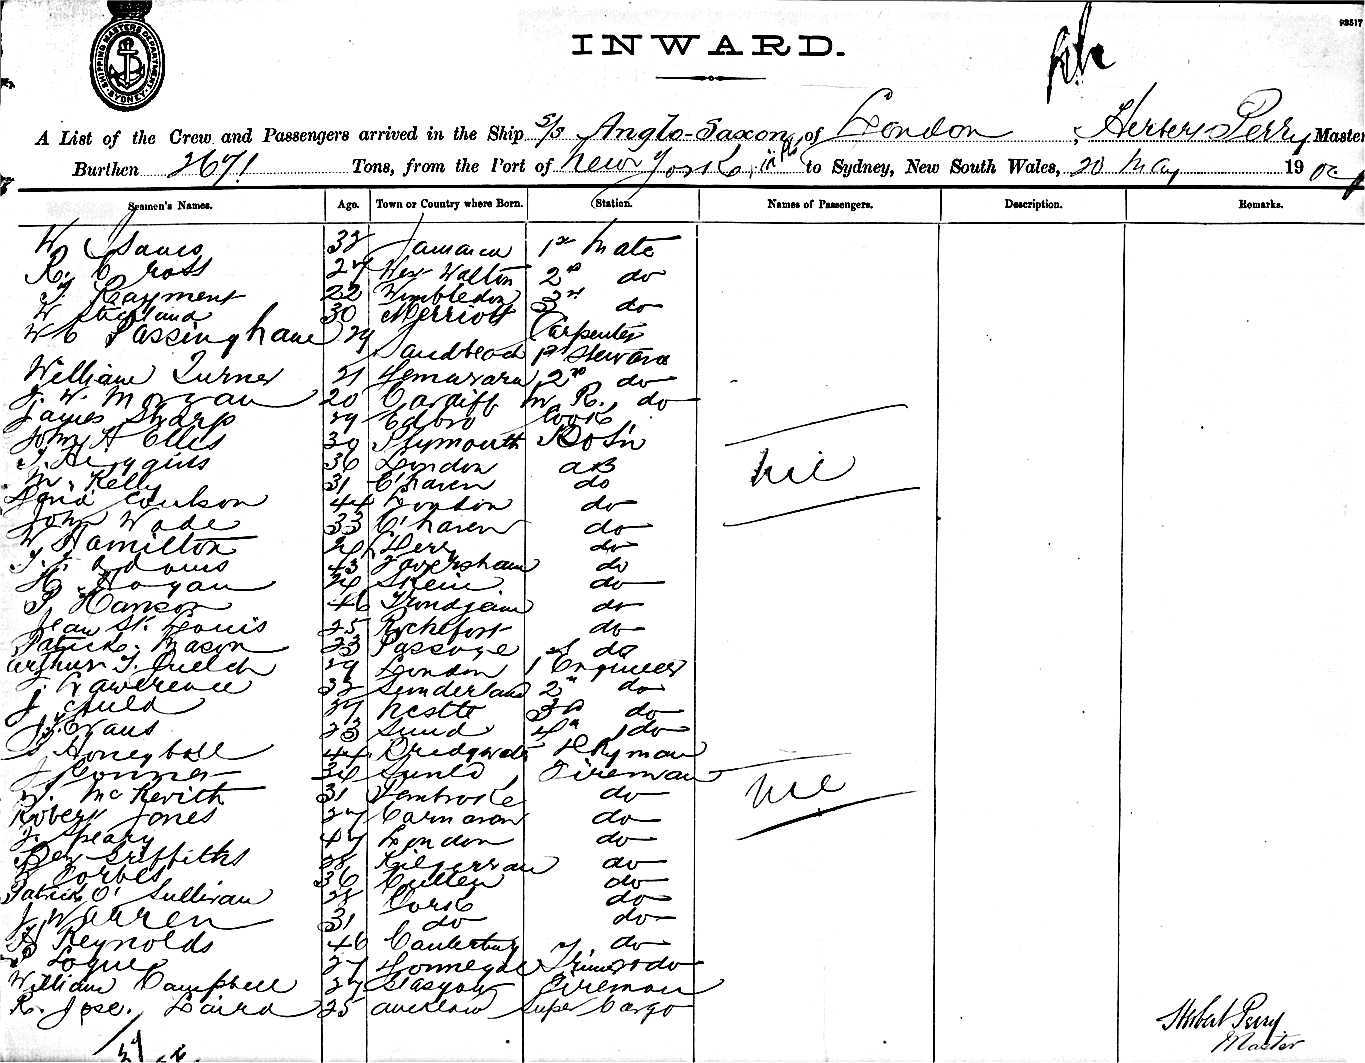 93517
SHIPPING MASTERS DEPARTMENT SYDNEY
INWARD.
A List of the Crew and Passengers arrived in the Ship S/S Anglo-Saxon of London, Herbert Perry Master
Burthen 2671 Tons, from the Port of New York, to Sydney, New South Wales, 20 May 190
Seamen's Names. Age. Town or Country where Born. Station. Names of Passengers. Description. Remarks.
W 32 Jamaica 1st Mate
R. Cross 27 Walton 2nd do
Rayment 22 Wimbledon 3rd do
W 30 Merriott
W C Passingham 29 Carpenter
Sandbach 1st Steward
William Turner 21 Demarara 2nd do
J. W. Morgan 20 Cardiff M. R. do
James Sharp 29 Edbro Cook
John H Ellis 39 Plymouth Bos'n
36 London AB
M. Kelly 31 C'haven do
Coulson 44 London do
nil
John Wade 33 C'haven do
W Hamilton do
Adams 43 Faversham do
H. Hogan Skein do
P Hanson 46 Trondjeim do
Jean St. Louis 25 Rochefort do
Patrick Mason 23 Passage do
Arthur J. Quelch 29 London 1 Engineer
Lawerence 32 Sunderland 2nd do
J Auld 37 do
J. Evans 23 Sund 4th do
Honeyball 44 Bridgwater Dkyman
Connor Fireman
McKevith 31 Pembroke do
nil
Robert Jones 27 Carnavon do
J. Speary 47 London do
Ben Griffiths 28 Kilgerran do
Forbes 36 Cullen do
Patrick O'Sullivan 28 Cork do
J Warren 31 do do
H Reynolds 46 Canterbury do
Logue 27 Donnegal Trimer do
William Campbell 27 Glasgow Fireman
R. Jose. Laird 25 Auckland Super Cargo
Herbert Perry
Master
37